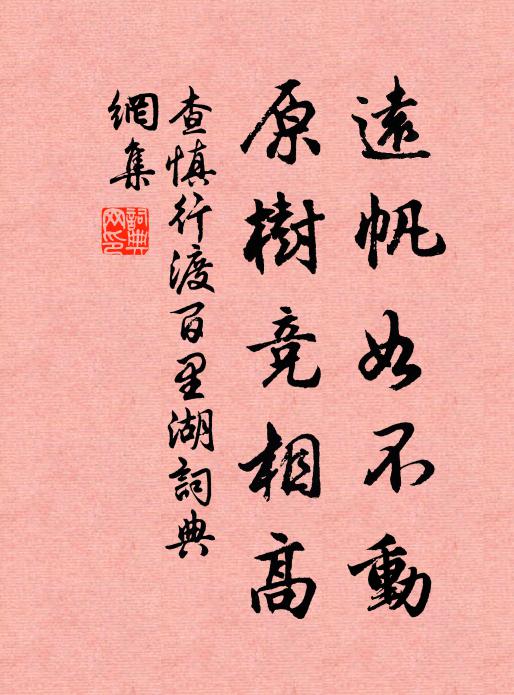 遠帆如不動
原樹竞相高
查慎行渡百里湖詞典
網集
詞典
网印